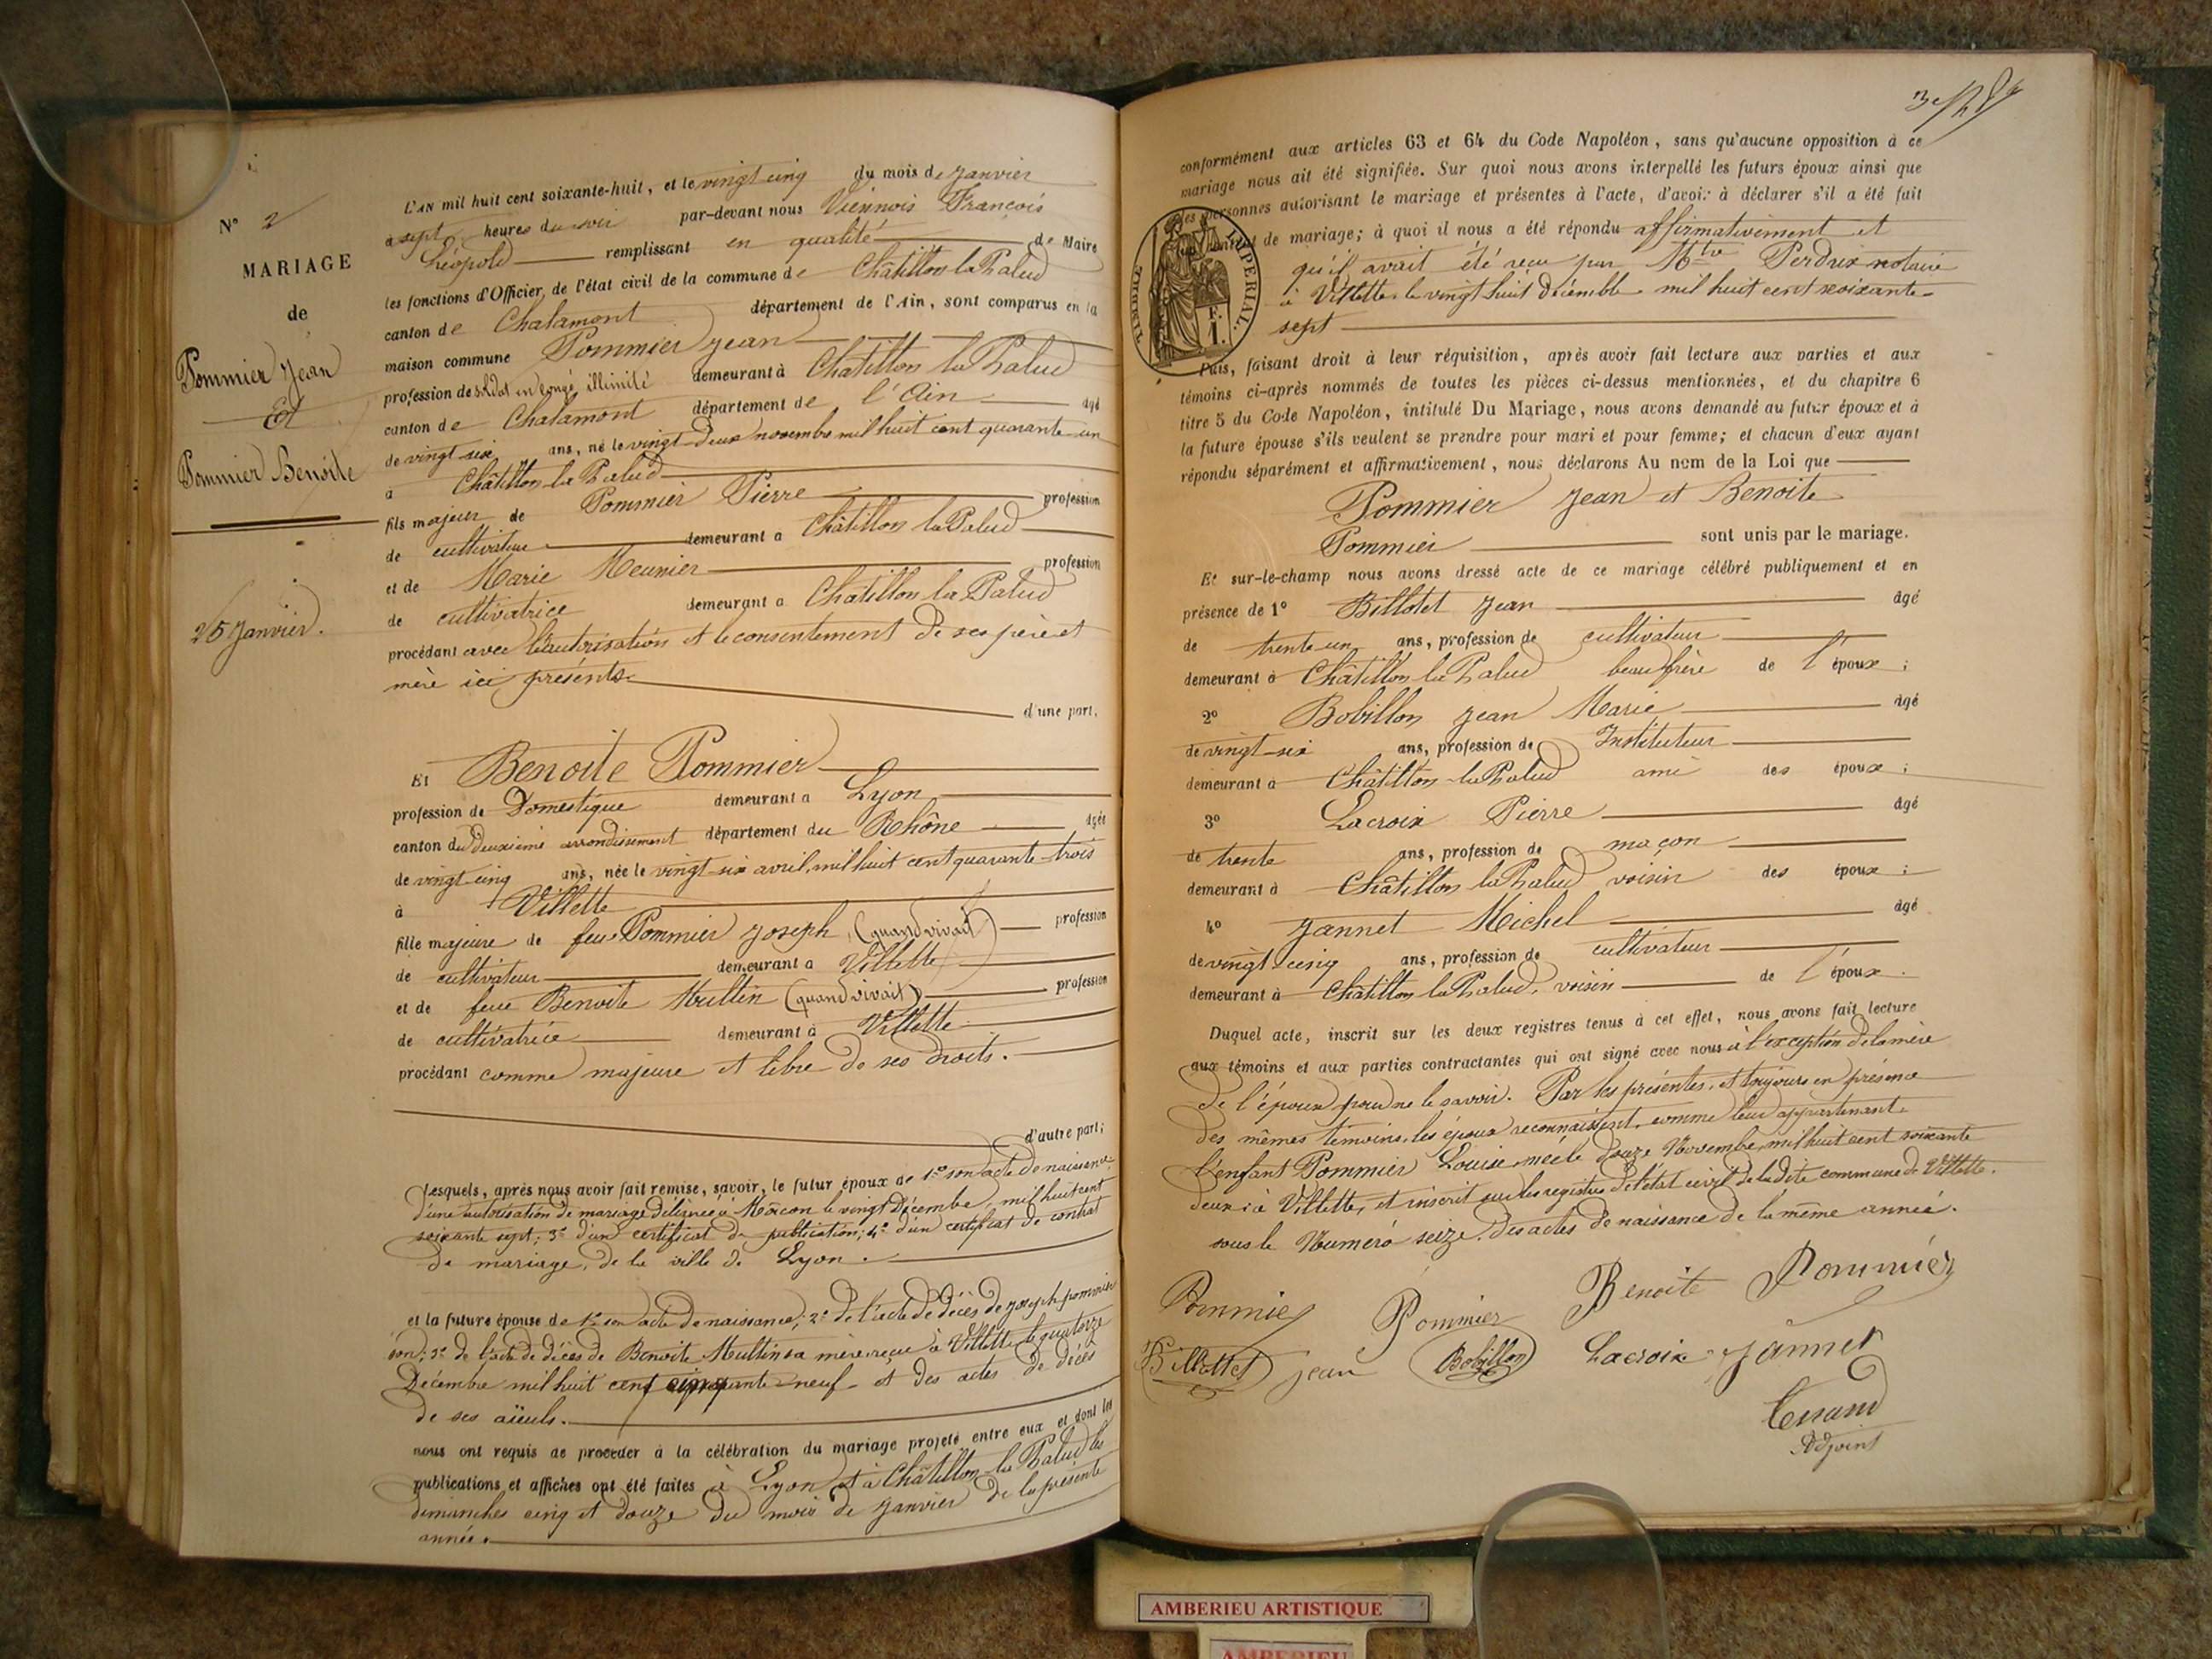 N° 2
MARIAGE
de
Pommier Jean
Et
Pommier Benoite
25 Janvier.
L'AN mil huit cent soixante-huit, et le vingt cinq du mois de Janvier
à sept heures du soir par-devant nous Viennois François
Léopold remplissant en qualité de Maire
les fonctions d'Officier de l'état civil de la commune de Châtillon la Palud
canton de Chalamont département de l'Ain, sont comparus en la
maison commune Pommier Jean
profession de soldat en congé illimité demeurant à Chatillon la Palud
canton de Chalamont département de l'Ain agé
de vingt six ans, né le vingt-deux novembre mil huit cent quarante-un
à Châtillon la Palud
fils majeur de Pommier Pierre profession
de cultivateur demeurant à Châtillon la Palud
et de Marie Meunier profession
de cultivatrice demeurant à Chatillon la Palud
procédant avec l'autorisation et le consentement de ses père et
mère ici présents. d'une part,
Et Benoite Pommier
profession de Domestique demeurant à Lyon
canton du deuxième arrondissement département du Rhône agée
de vingt cinq ans, née le vingt-six avril, mil huit cent quarante-trois
à Villette
fille majeure de feu Pommier Joseph, (quand vivait) profession
de cultivateur demeurant à Villette
et de feue Benoite Mullin (quand vivait) profession
de cultivatrice demeurant à Villette
procédant comme majeure et libre de ses droits.
d'autre part;
Lesquels, après nous avoir fait remise, savoir, le futur époux de 1° son acte de naissance
d'une autorisation de mariage délivrée à Mâcon le vingt Décembre mil huit cent
soixante sept; 3° d'un certificat de publication; 4° d'un certificat de contrat
de mariage, de la ville de Lyon.
et la future épouse de 1° son acte de naissance; 2° de l'acte de décès de Joseph pommier
son; 3° de l'acte de décès de Benoite Mullin sa mère reçu à Villette le quatorze
Décembre mil huit cent cinquante-neuf et des actes de décès
de ses aïeuls.
nous ont requis de procéder à la célébration du mariage projeté entre eux et dont les
publications et affiches ont été faites à Lyon et à Châtillon la Palud les
dimanches cinq et douze du mois de Janvier de la présente
année.
conformément aux articles 63 et 64 du Code Napoléon, sans qu'aucune opposition à ce
mariage nous ait été signifiée. Sur quoi nous avons interpellé les futurs époux ainsi que
les personnes autorisant le mariage et présentes à l'acte, d'avoir à déclarer s'il a été fait
contrat de mariage; à quoi il nous a été répondu affirmativement et
qu'il avait été reçu par Mtre Perdrix notaire
à Villette le vingt huit décembre mil huit cent soixante-
sept
TIMBRE IMPERIAL.
F. 1.
Puis, faisant droit à leur réquisition, après avoir fait lecture aux parties et aux
témoins ci-après nommés de toutes les pièces ci-dessus mentionnées, et du chapitre 6
titre 5 du Code Napoléon, intitulé Du Mariage, nous avons demandé au futur époux et à
la future épouse s'ils veulent se prendre pour mari et pour femme; et chacun d'eux ayant
répondu séparément et affirmativement, nous déclarons Au nom de la Loi que
Pommier Jean et Benoite
Pommier sont unis par le mariage.
Et sur-le-champ nous avons dressé acte de ce mariage célébré publiquement et en
présence de 1° Billotet Jean agé
de trente un ans, profession de cultivateur
demeurant à Châtillon la Palud beau frère de l'époux;
2° Bobillon Jean Marie agé
de vingt-six ans, profession de Instituteur
demeurant à Châtillon la Palud ami des époux;
3° Lacroix Pierre agé
de trente ans, profession de maçon
demeurant à Châtillon la Palud voisin des époux;
4° Jannet Michel agé
de vingt-cinq ans, profession de cultivateur
demeurant à Châtillon la Palud, voisin de l'époux.
Duquel acte, inscrit sur les deux registres tenus à cet effet, nous avons fait lecture
aux témoins et aux parties contractantes qui ont signé avec nous à l'exception de la mère
de l'époux pour ne le savoir. Par les présentes, et toujours en présence
des mêmes témoins, les époux reconnaissent, comme leur appartenant
l'enfant Pommier Louise née le douze Novembre mil huit cent soixante
deux à Villette, et inscrit sur les registres de l'état civil de la dite commune de Villette.
sous le Numéro seize. des actes de naissance de la même année.
Pommier Pommier Benoite Pommier
Billottet jean Bobillon Lacroix Jannet
Adjoint
AMBERIEU ARTISTIQUE
AMBERIEU